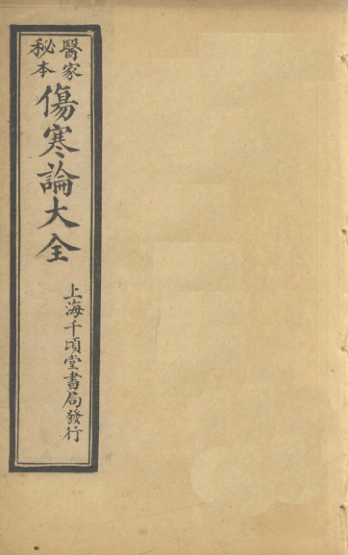 醫家
秘本
傷寒論大全
上海千頃堂書局發行